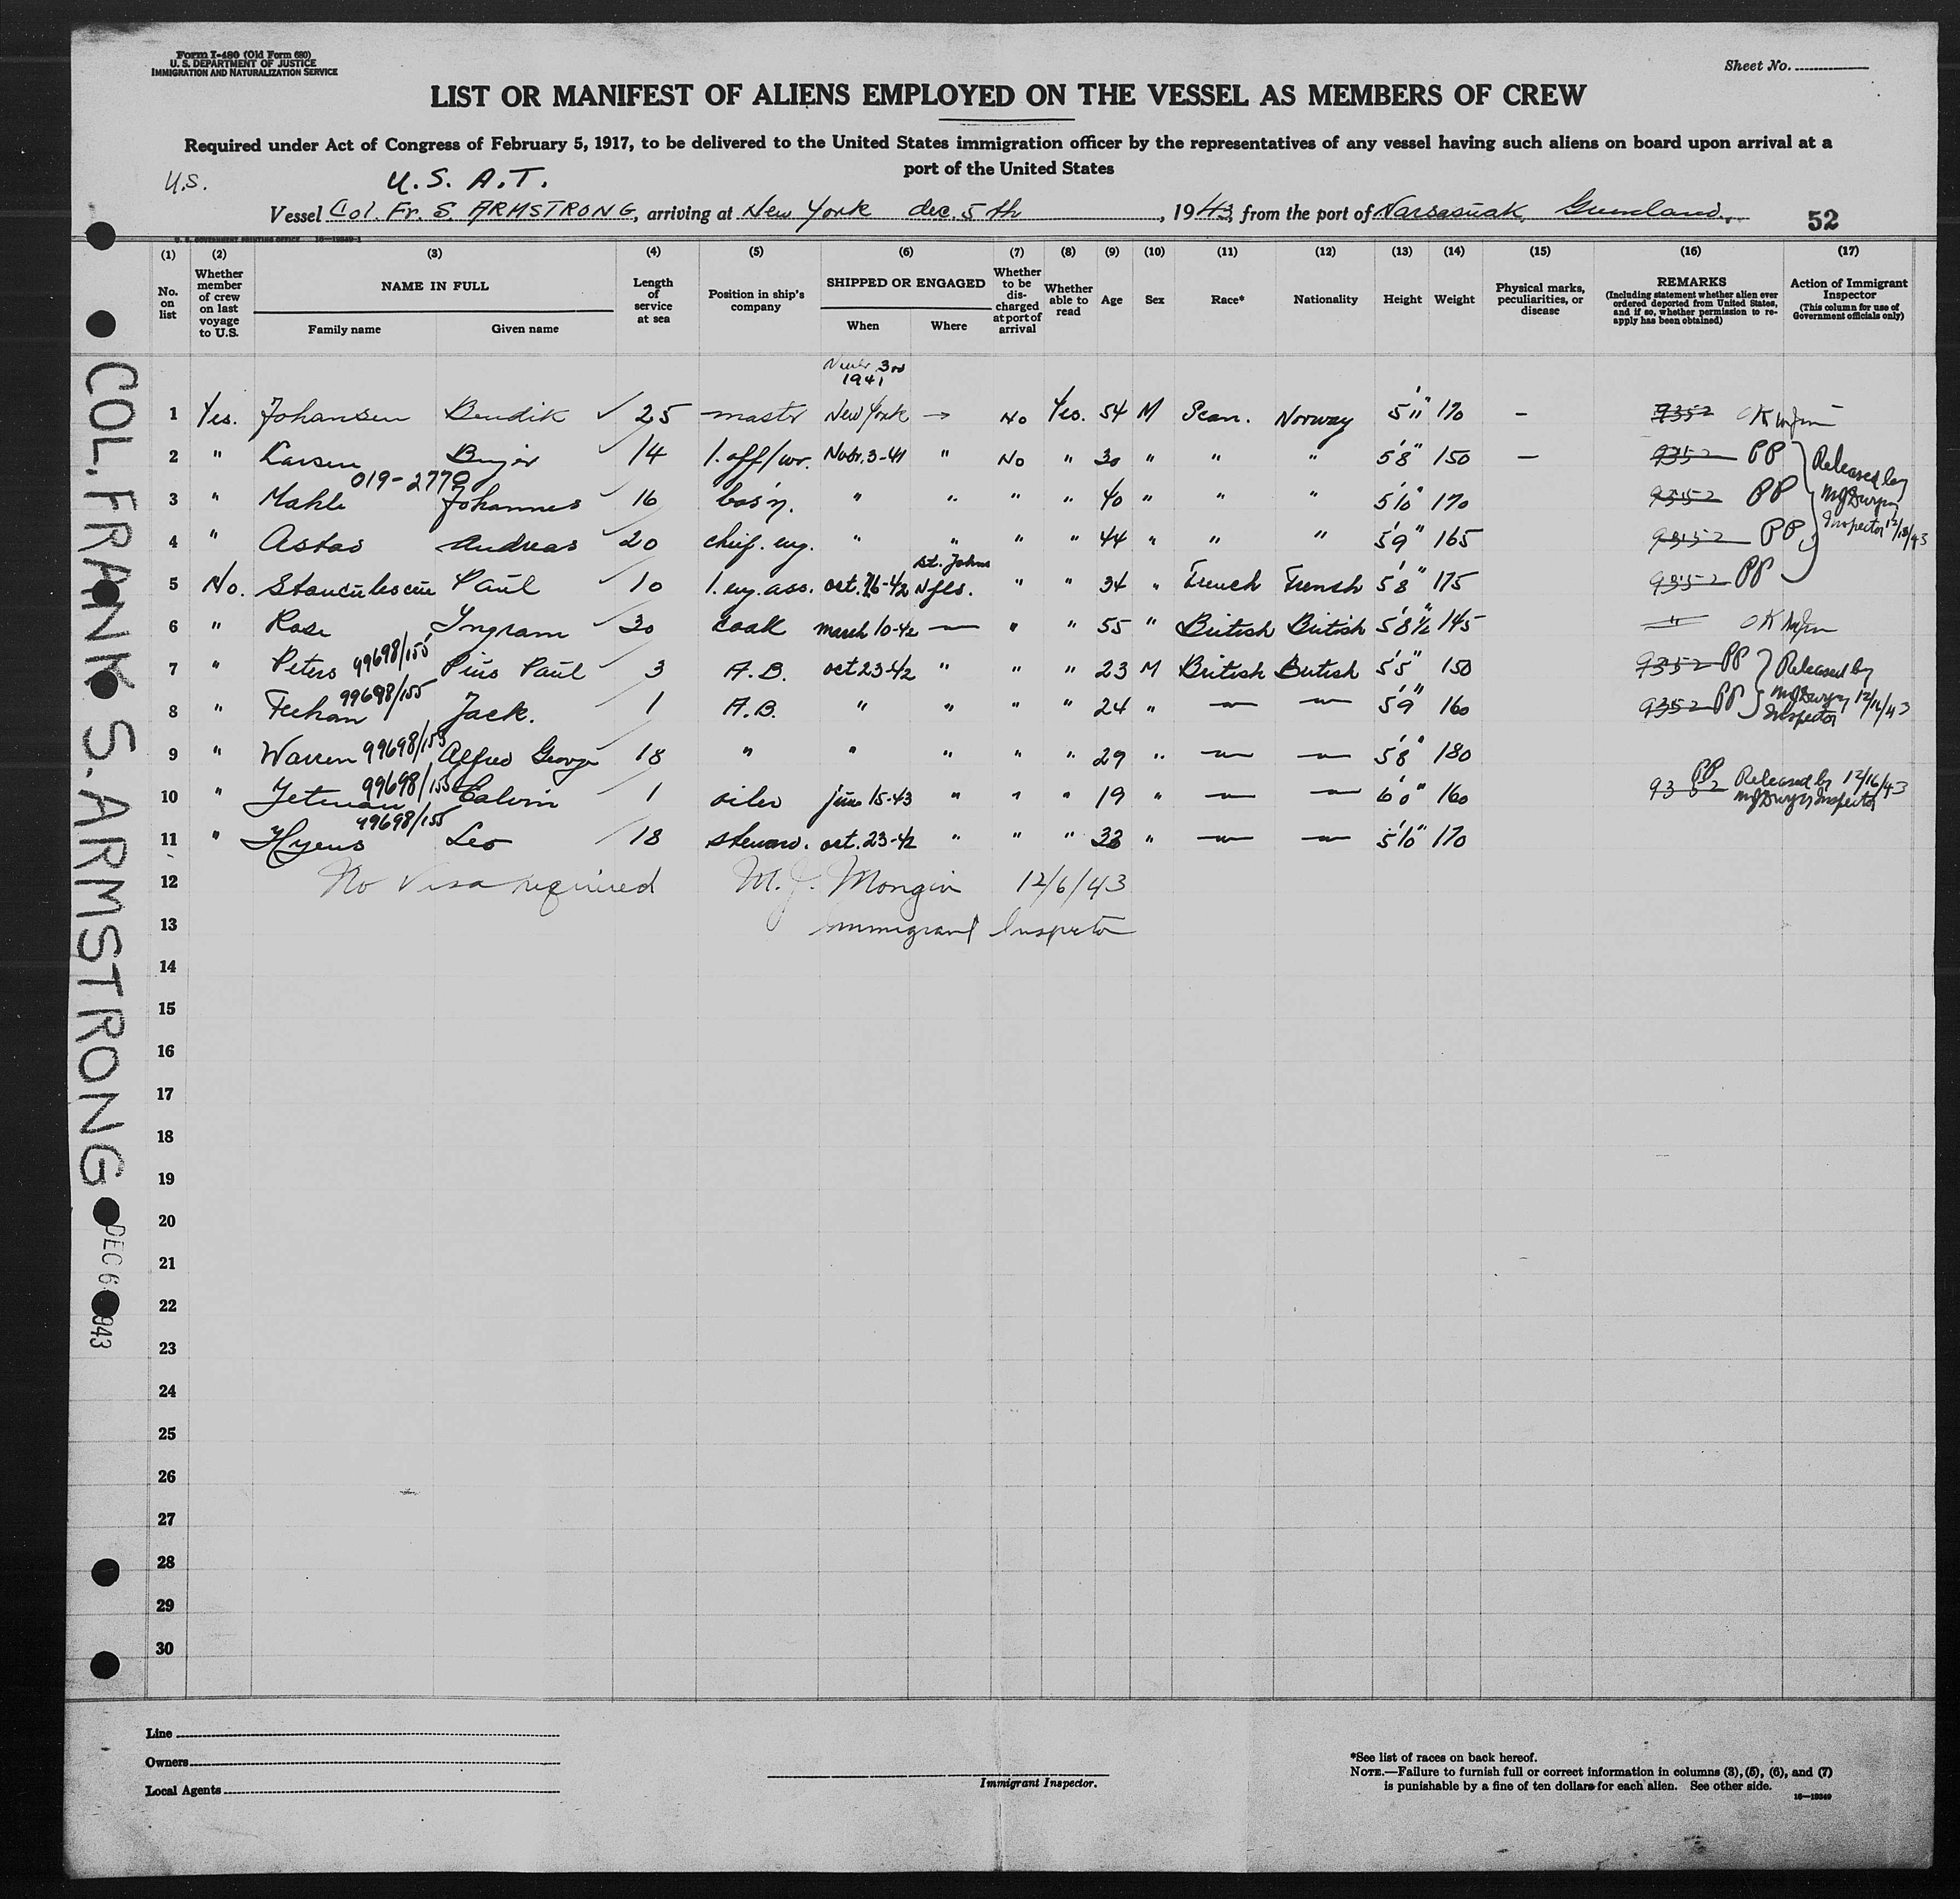 Form I-480 (Old Form 680)
U. S. DEPARTMENT OF JUSTICE
IMMIGRATION AND NATURALIZATION SERVICE
Sheet No.
LIST OR MANIFEST OF ALIENS EMPLOYED ON THE VESSEL AS MEMBERS OF CREW
Required under Act of Congress of February 5, 1917, to be delivered to the United States immigration officer by the representatives of any vessel having such aliens on board upon arrival at a
port of the United States
U.S. U. S. A.T.
Vessel Col. Fr. S. ARMSTRONG, arriving at New York dec. 5th, 1943, from the port of Narsasuak, Greenland.
52
U. S. GOVERNMENT PRINTING OFFICE 16—19349-1
(1) (2) (3) (4) (5) (6) (7) (8) (9) (10) (11) (12) (13) (14) (15) (16) (17)
No. on list
Whether member of crew on last voyage to U.S.
NAME IN FULL
Family name Given name
Length of service at sea
Position in ship's company
SHIPPED OR ENGAGED
When Where
Whether to be discharged at port of arrival
Whether able to read
Age
Sex
Race*
Nationality
Height
Weight
Physical marks, peculiarities, or disease
REMARKS
(Including statement whether alien ever ordered deported from United States, and if so, whether permission to re-apply has been obtained)
Action of Immigrant Inspector
(This column for use of Government officials only)
3rd
1941
1 Yes. Johansen Bendik ✓ 25 master New York → No Yes. 54 M Scan. Norway 5'11" 170 – 9352 OK
2 " Larsen 14 1. off/wr. Nobr. 3-41 " No " 30 " " " 5'8" 150 — 9352 PP
019-2770
Released by
3 " Mahle Johannes 16 bos'n. " " " " 40 " " " 5'10" 170 9352 PP
4 " Astas Andreas 20 chief. eng. " " " " 44 " " " 5'9" 165 9352 PP
Inspector 12/18/43
St. Johns
5 No. Stanculescue Paul 10 1. eng. ass. oct. 26-42 Nfld. " " 34 " French French 5'8" 175 9352 PP
6 " Rose Ingram 30 cook march 10-42 — " " 55 " British British 5'8½" 145 " OK
7 " Peters 99698/155 Pius Paul 3 A.B. oct 23-42 " " " 23 M British British 5'5" 150 9352 PP Released by
8 " Feehan 99698/155 Jack. 1 A.B. " " " " 24 " — — 5'9" 160 9352 PP 12/16/43
Inspector
9 " Warren 99698/155 Alfred George 18 " " " " " 29 " — — 5'8" 180
10 " Yetman 99698/155 Calvin 1 oiler june 15-43 " " " 19 " — — 6'0" 160 9352 PP Released by 12/16/43
Inspector
11 " Hynes 99698/155 Leo 18 steward. oct. 23-42 " " " 32 " — — 5'10" 170
12 No Visa required M. J. Mongin 12/6/43
13 Immigrant Inspector
14
15
16
17
18
19
20
21
22
23
24
25
26
27
28
29
30
COL. FRANK S. ARMSTRONG
DEC 6 1943
Line
Owners
Local Agents
Immigrant Inspector.
*See list of races on back hereof.
NOTE.—Failure to furnish full or correct information in columns (3), (5), (6), and (7)
is punishable by a fine of ten dollars for each alien. See other side.
16—19349